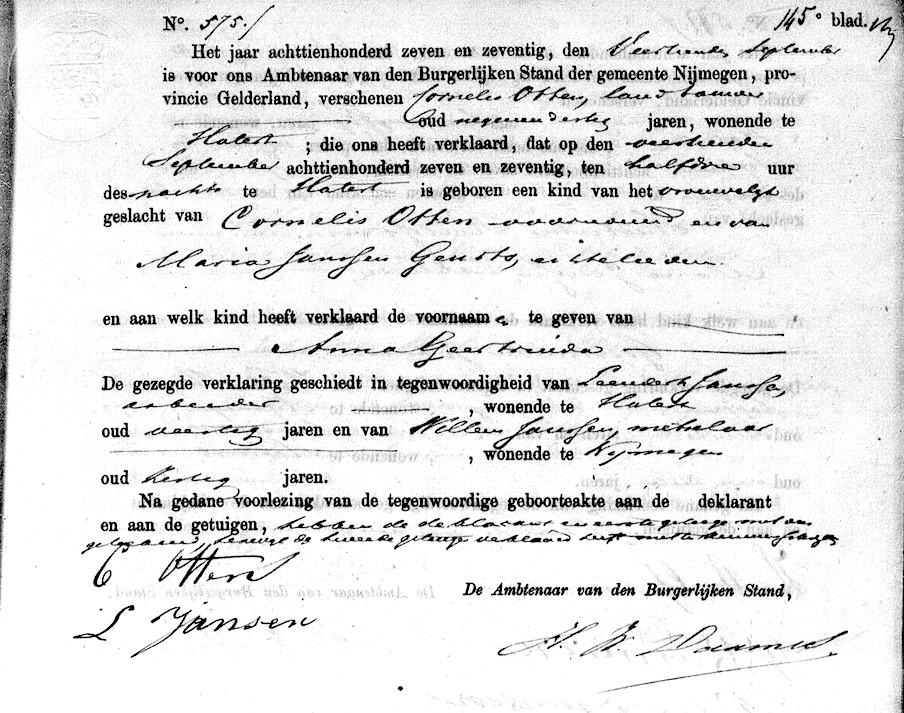 N°. 575. 145° blad.
Het jaar achttienhonderd zeven en zeventig, den Veertienden September
is voor ons Ambtenaar van den Burgerlijken Stand der gemeente Nijmegen, pro-
vincie Gelderland, verschenen Cornelis Otten, landbouwer
oud negenendertig jaren, wonende te
Hatert ; die ons heeft verklaard, dat op den veertienden
September achttienhonderd zeven en zeventig, ten halfdrie uur
des nachts te Hatert is geboren een kind van het vrouwelijk
geslacht van Cornelis Otten voornoemd en van
Maria Janssen echtelieden
en aan welk kind heeft verklaard de voornaamen te geven van
Anna Geertruida
De gezegde verklaring geschiedt in tegenwoordigheid van Leendert Janssen,
arbeider , wonende te Hatert
oud veertig jaren en van Willem Janssen, metselaar
, wonende te Nijmegen
oud jaren.
Na gedane voorlezing van de tegenwoordige geboorteakte aan de deklarant
en aan de getuigen, hebben de deklarant en eerste getuige met ons
geteekend, de tweede getuige verklaard heeft niet te kunnen
C Otten
De Ambtenaar van den Burgerlijken Stand,
L Jansen